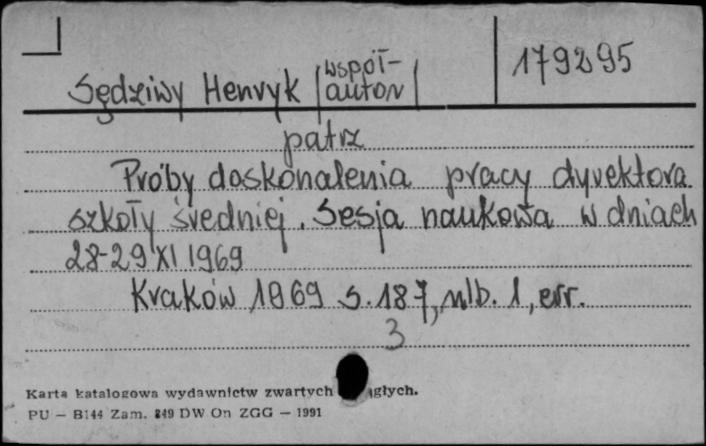 179295
Sędziwy Henryk |współ-
autor|
patrz
Próby doskonalenia pracy dyrektora
szkoły średniej. Sesja naukowa w dniach
28-29 XI 1969
Kraków 1969 s. 187, nlb. 1, err.
3
Karta katalogowa wydawnictw zwartych głych.
PU — B144 Zam. 249 DW On ZGG — 1991